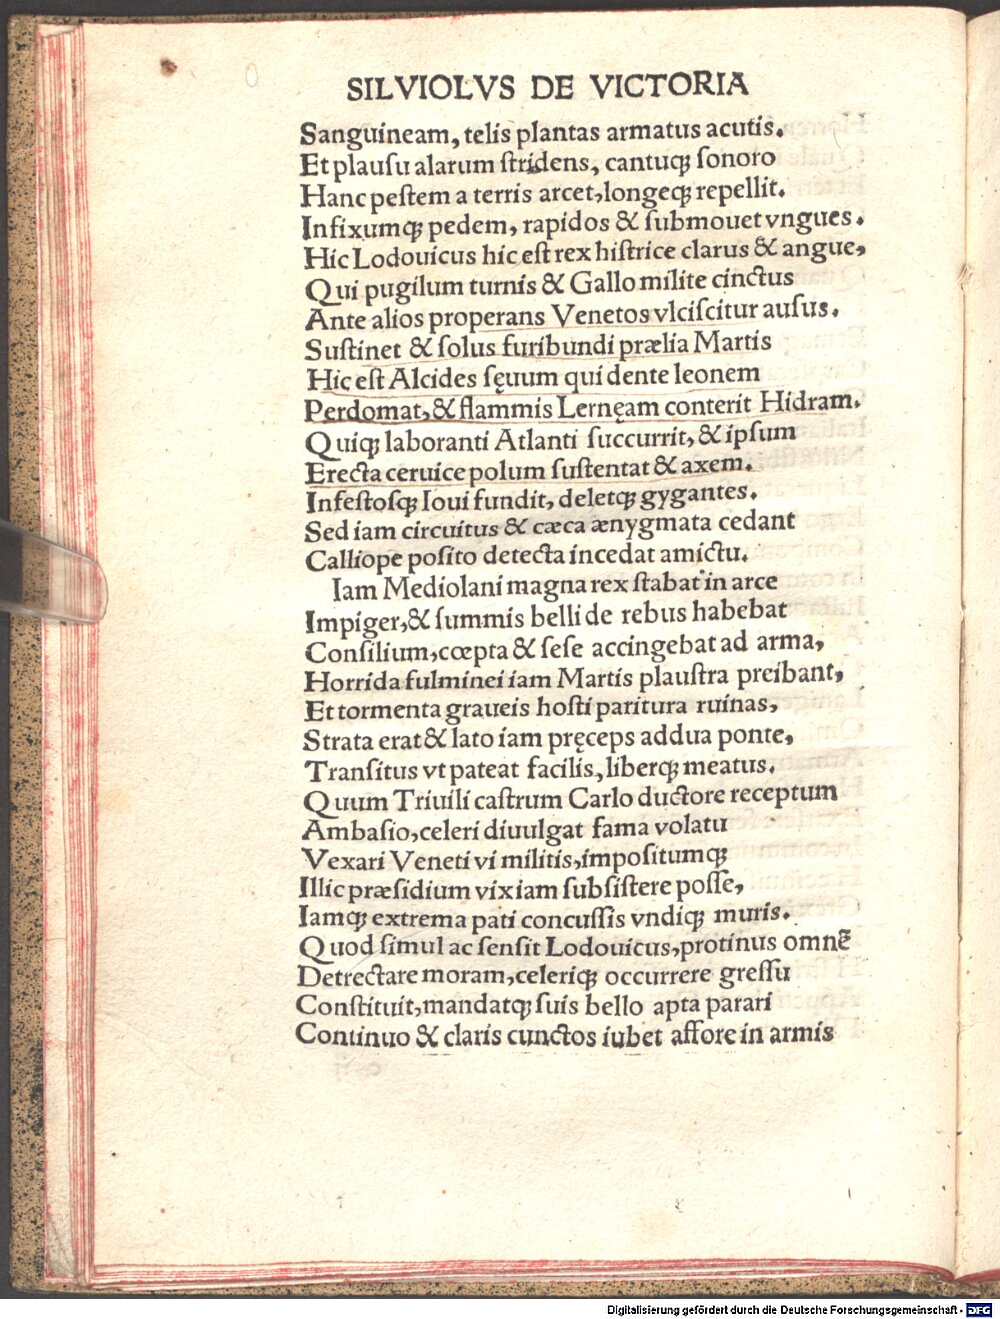 SILVIOLVS DE VICTORIA
Sanguineam, telis plantas armatus acutis.
Et plausu alarum stridens, cantuqꝫ sonoro
Hanc pestem a terris arcet, longeqꝫ repellit.
Infixumqꝫ pedem, rapidos & submouet vngues.
Hic Lodouicus hic est rex histrice clarus & angue,
Qui pugilum turnis & Gallo milite cinctus
Ante alios properans Venetos vlciscitur ausus.
Sustinet & solus furibundi prælia Martis
Hic est Alcides sęuum qui dente leonem
Perdomat, & flammis Lernęam conterit Hidram.
Quiqꝫ laboranti Atlanti succurrit, & ipsum
Erecta ceruice polum sustentat & axem.
Infestosqꝫ Ioui fundit, deletqꝫ gygantes.
Sed iam circuitus & cæca ænygmata cedant
Calliope posito detecta incedat amictu.
Iam Mediolani magna rex stabat in arce
Impiger, & summis belli de rebus habebat
Consilium, cœpta & sese accingebat ad arma,
Horrida fulminei iam Martis plaustra preibant,
Et tormenta graueis hosti paritura ruinas,
Strata erat & lato iam pręceps addua ponte,
Transitus vt pateat facilis, liberqꝫ meatus.
Quum Triuili castrum Carlo ductore receptum
Ambasio, celeri diuulgat fama volatu
Vexari Veneti vi militis, impositumqꝫ
Illic præsidium vix iam subsistere posse,
Iamqꝫ extrema pati concussis vndiqꝫ muris.
Quod simul ac sensit Lodouicus, protinus omnē
Detrectare moram, celeriqꝫ occurrere gressu
Constituit, mandatqꝫ suis bello apta parari
Continuo & claris cunctos iubet affore in armis
Digitalisierung gefördert durch die Deutsche Forschungsgemeinschaft - DFG